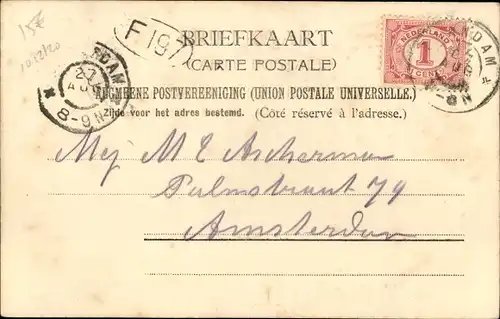 15€
F 197
BRIEFKAART
(CARTE POSTALE)
ALGMEENE POSTVEREENIGING (UNION POSTALE UNIVERSELLE.)
Zijde voor het adres bestemd. (Côté réservé à l'adresse.)
NEDERLAND
1
CENT
RDAM
8-9N
DAM
8-9N
Mej M E Ascherman
Palmstraat 79
Amsterdam